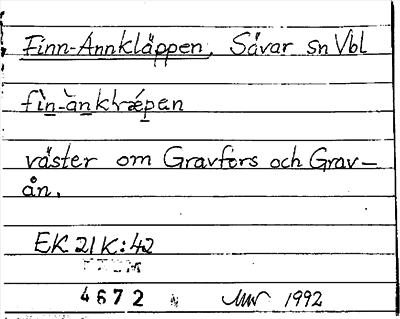 Finn-Annkläppen, Sävar sn Vbl
fìn-ànkḷæ̀pen
väster om Gravfors och Grav-
ån.
EK 21K:42
4672
1992